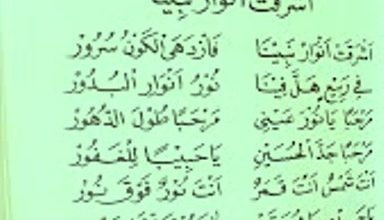 اَشْرَقَتْ اَنْوَارُ نَبِيِّنَا
اَشْرَقَتْ اَنْوَارُ نَبِيِّنَا فَازْدَهَى الْكَوْنُ سُرُوْرْ
فِى رَبِيْعٍ هَلَّ فِيْنَا نُوْرُ اَنْوَارِ الْبُدُوْرْ
مَرْحَبًا يَانُوْرَ عَيْنِى مَرْحَبًا طُوْلَ الدُّهُوْرْ
مَرْحَبًا جَدَّ الْحُسَيْنِ يَاحَبِيْبًا لِلْغَفُوْرْ
اَنْتَ شَمْسٌ اَنْتَ قَمَرٌ اَنْتَ نُوْرٌ فَوْقَ نُوْرْ